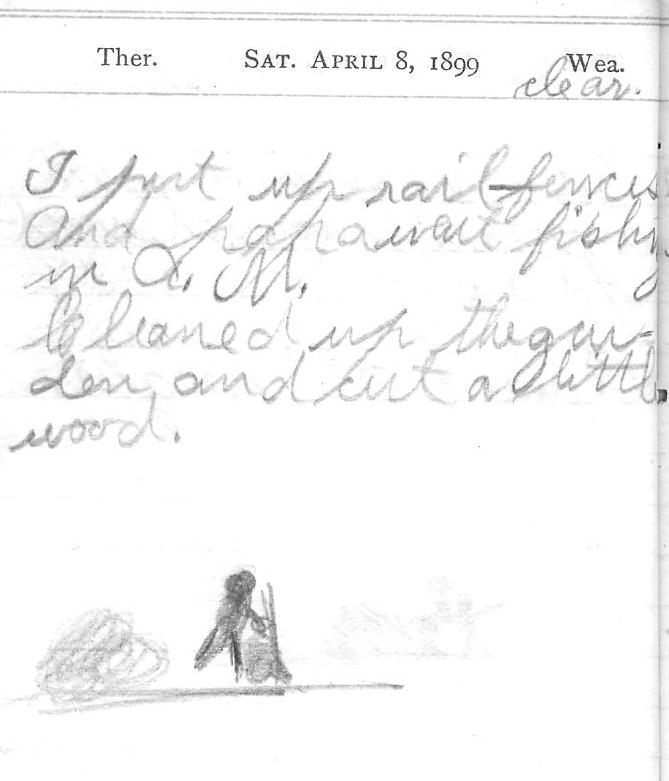 Ther. SAT. APRIL 8, 1899 Wea.
clear.
I put up rail fences
And papa went fishing
in A. M.
Cleaned up the gar-
den, and cut a little
wood.